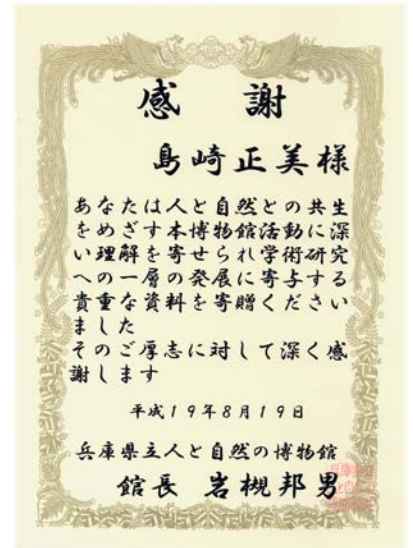 感謝
島崎正美様
あなたは人と自然との共生
をめざす人本博物館活動に深
い理解を寄せられ学術研究
への一層の発展に寄与する
貴重な資料を寄贈ください
ました
そのご厚志に対して深く感
謝します
平成19年8月19日
兵庫県立人と自然の博物館
館長 岩槻邦男